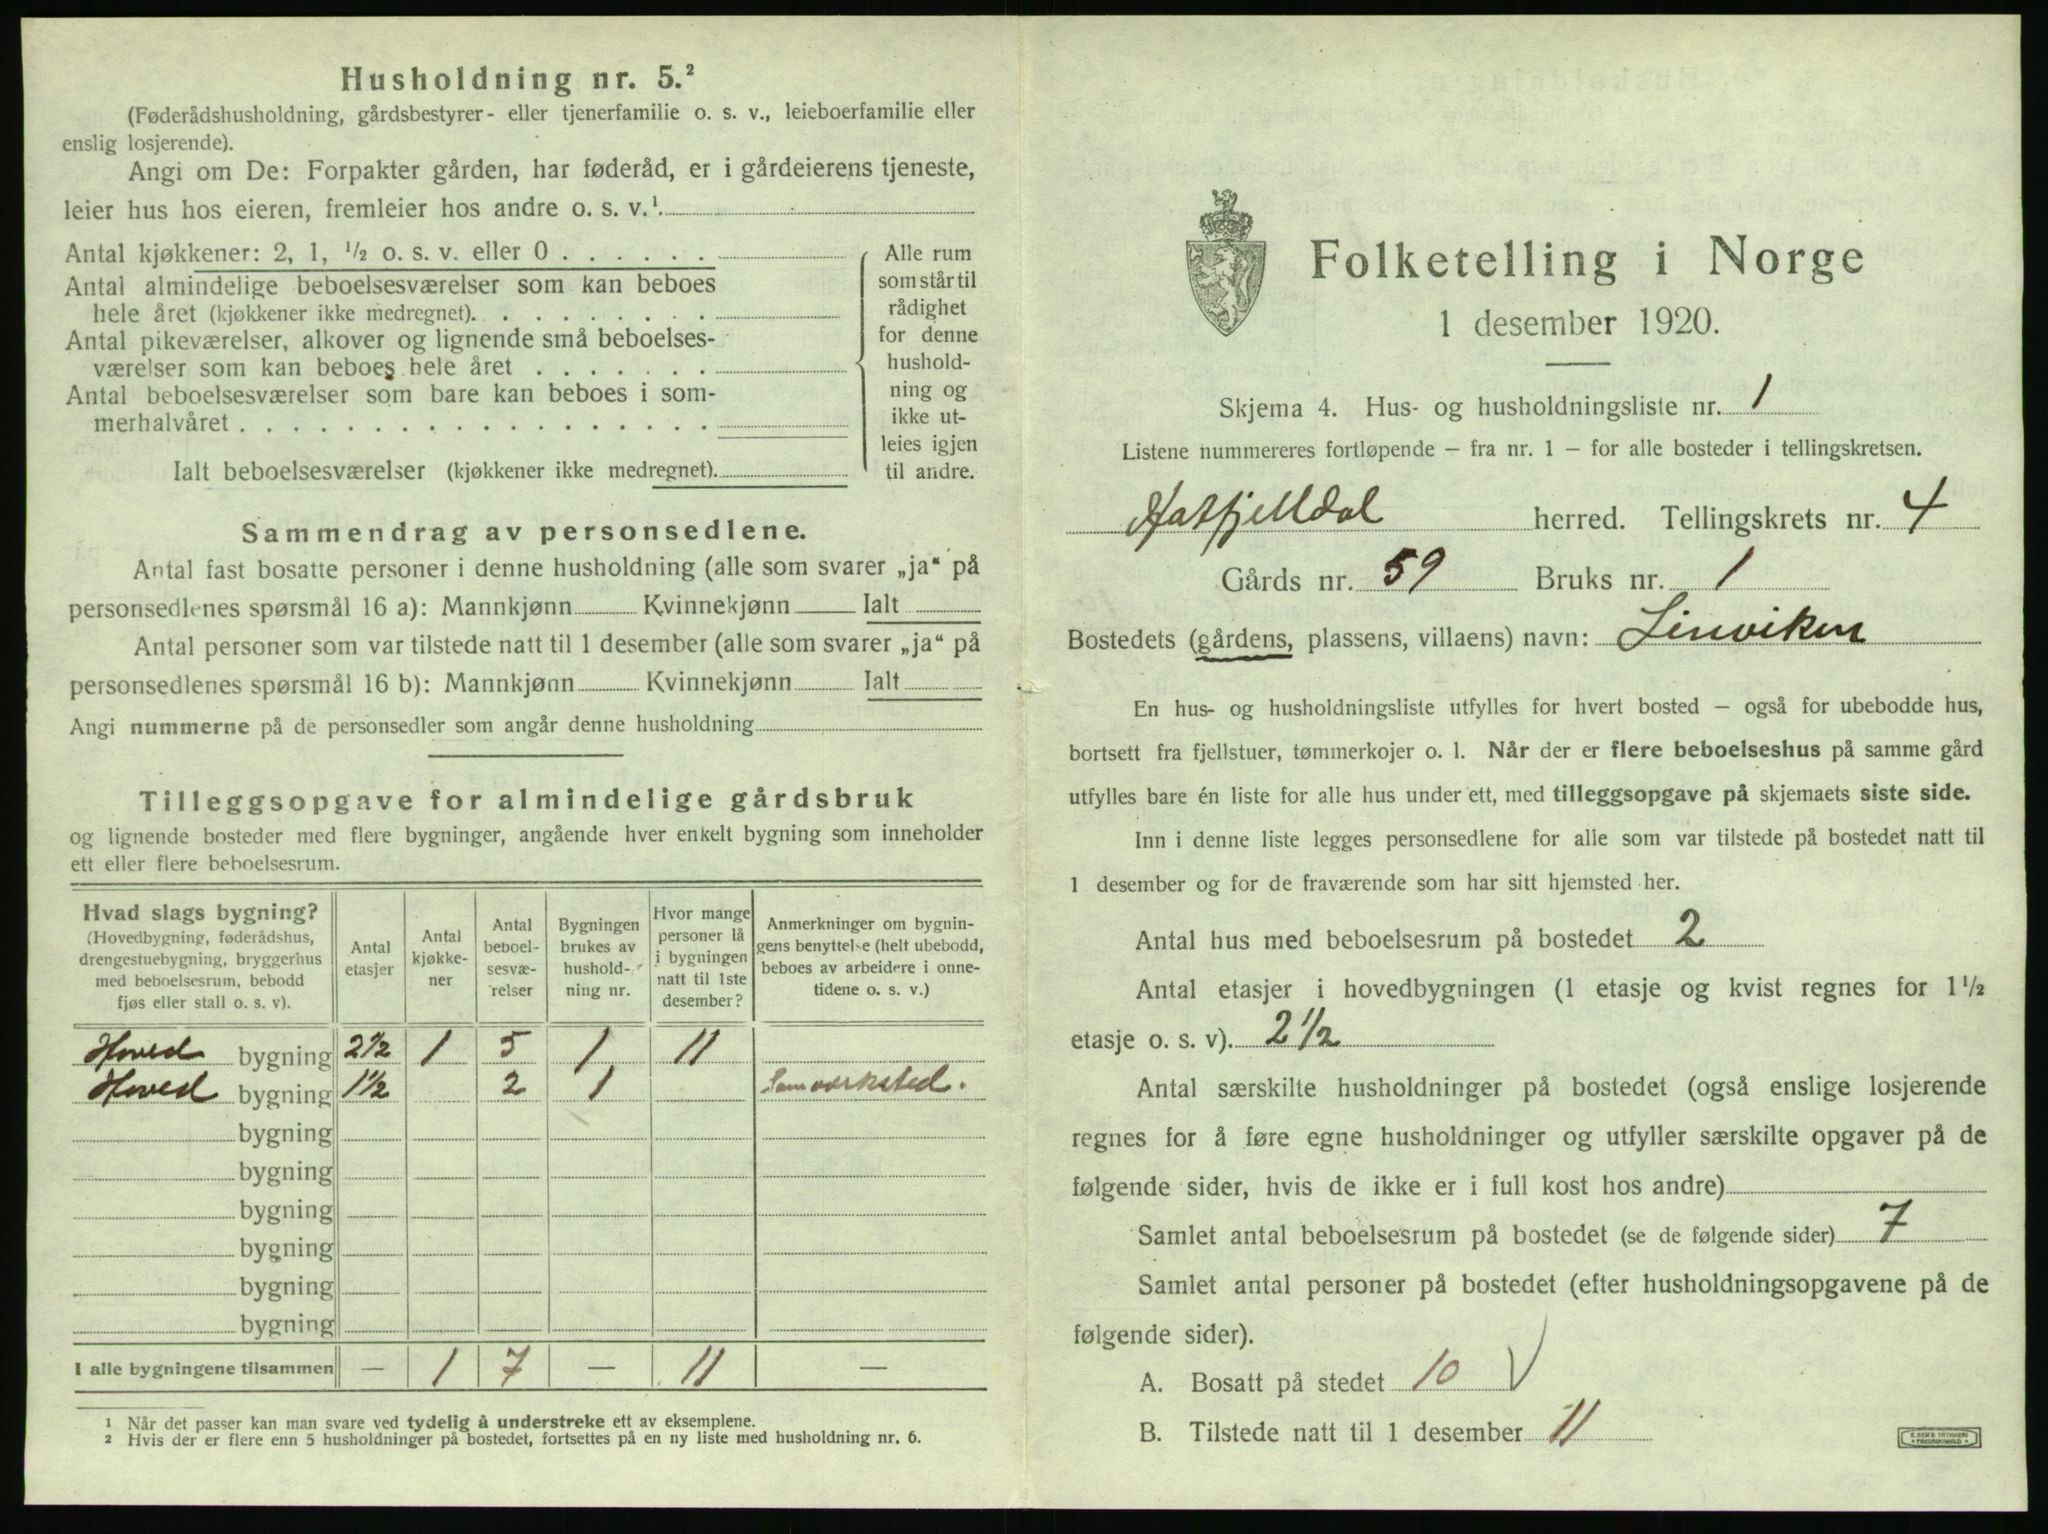 Husholdning nr. 5.²
(Føderådshusholdning, gårdsbestyrer- eller tjenerfamilie o. s. v., leieboerfamilie eller
enslig losjerende).
Angi om De: Forpakter gården, har føderåd, er i gårdeierens tjeneste,
leier hus hos eieren, fremleier hos andre o. s. v.¹
Antal kjøkkener: 2, 1, ½ o. s. v. eller 0 . . . . . .
Antal almindelige beboelsesværelser som kan beboes
hele året (kjøkkener ikke medregnet). . . . . . . . .
Antal pikeværelser, alkover og lignende små beboelses-
værelser som kan beboes hele året . . . . . . .
Antal beboelsesværelser som bare kan beboes i som-
merhalvåret . . . . . . . . . . . . . . . . . .
Ialt beboelsesværelser (kjøkkener ikke medregnet).
Alle rum
som står til
rådighet
for denne
hushold-
ning og
ikke ut-
leies igjen
til andre.
Sammendrag av personsedlene.
Antal fast bosatte personer i denne husholdning (alle som svarer „ja“ på
personsedlenes spørsmål 16 a): Mannkjønn Kvinnekjønn Ialt
Antal personer som var tilstede natt til 1 desember (alle som svarer „ja“ på
personsedlenes spørsmål 16 b): Mannkjønn Kvinnekjønn Ialt
Angi nummerne på de personsedler som angår denne husholdning
Tilleggsopgave for almindelige gårdsbruk
og lignende bosteder med flere bygninger, angående hver enkelt bygning som inneholder
ett eller flere beboelsesrum.
Hvad slags bygning?
(Hovedbygning, føderådshus,
drengestuebygning, bryggerhus
med beboelsesrum, bebodd
fjøs eller stall o. s. v).
Antal
etasjer
Antal
kjøkke-
ner
Antal
beboel-
sesvæ-
relser
Bygningen
brukes av
hushold-
ning nr.
Hvor mange
personer lå
i bygningen
natt til 1ste
desember?
Anmerkninger om bygnin-
gens benyttelse (helt ubebodd,
beboes av arbeidere i onne-
tidene o. s. v.)
Hoved bygning 2½ 1 5 1 11
Hoved bygning 1½ 2 1 Som verksted.
bygning
bygning
bygning
bygning
bygning
bygning
I alle bygningene tilsammen — 1 7 — 11 —
¹ Når det passer kan man svare ved tydelig å understreke ett av eksemplene.
² Hvis der er flere enn 5 husholdninger på bostedet, fortsettes på en ny liste med husholdning nr. 6.
Folketelling i Norge
1 desember 1920.
Skjema 4. Hus- og husholdningsliste nr. 1
Listene nummereres fortløpende — fra nr. 1 — for alle bosteder i tellingskretsen.
Hatfjelldal herred. Tellingskrets nr. 4
Gårds nr. 59 Bruks nr. 1
Bostedets (gårdens, plassens, villaens) navn: Linviken
En hus- og husholdningsliste utfylles for hvert bosted — også for ubebodde hus,
bortsett fra fjellstuer, tømmerkojer o. l. Når der er flere beboelseshus på samme gård
utfylles bare én liste for alle hus under ett, med tilleggsopgave på skjemaets siste side.
Inn i denne liste legges personsedlene for alle som var tilstede på bostedet natt til
1 desember og for de fraværende som har sitt hjemsted her.
Antal hus med beboelsesrum på bostedet 2
Antal etasjer i hovedbygningen (1 etasje og kvist regnes for 1½
etasje o. s. v). 2½
Antal særskilte husholdninger på bostedet (også enslige losjerende
regnes for å føre egne husholdninger og utfyller særskilte opgaver på de
følgende sider, hvis de ikke er i full kost hos andre)
Samlet antal beboelsesrum på bostedet (se de følgende sider) 7
Samlet antal personer på bostedet (efter husholdningsopgavene på de
følgende sider).
A. Bosatt på stedet 10 √
B. Tilstede natt til 1 desember 11